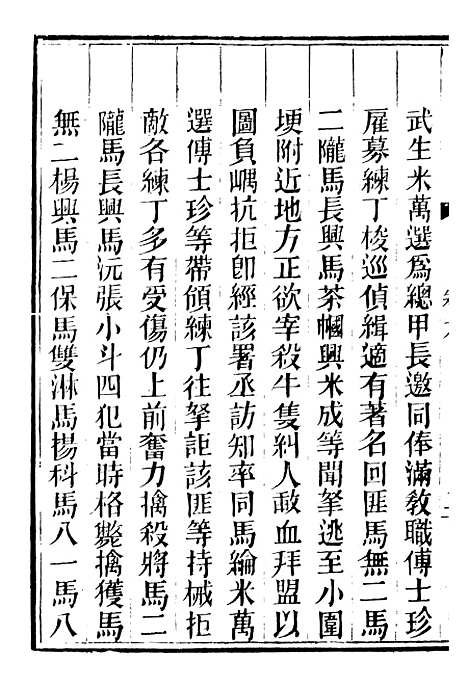 武生米萬選爲總甲長邀同俸滿敎職傅士珍
雇募練丁梭巡偵緝適有著名回匪馬無二馬
二隴馬長興馬茶幗興米成等聞拏逃至小圍
埂附近地方正欲宰殺牛隻糾人歃血拜盟以
圖負嵎抗拒卽經該署丞訪知率同馬綸米萬
選傅士珍等帶領練丁往拏詎該匪等持械拒
敵各練丁多有受傷仍上前奮力擒殺將馬二
隴馬長興馬沅張小斗四犯當時格斃擒獲馬
無二楊興馬二保馬雙淋馬揚科馬八一馬八